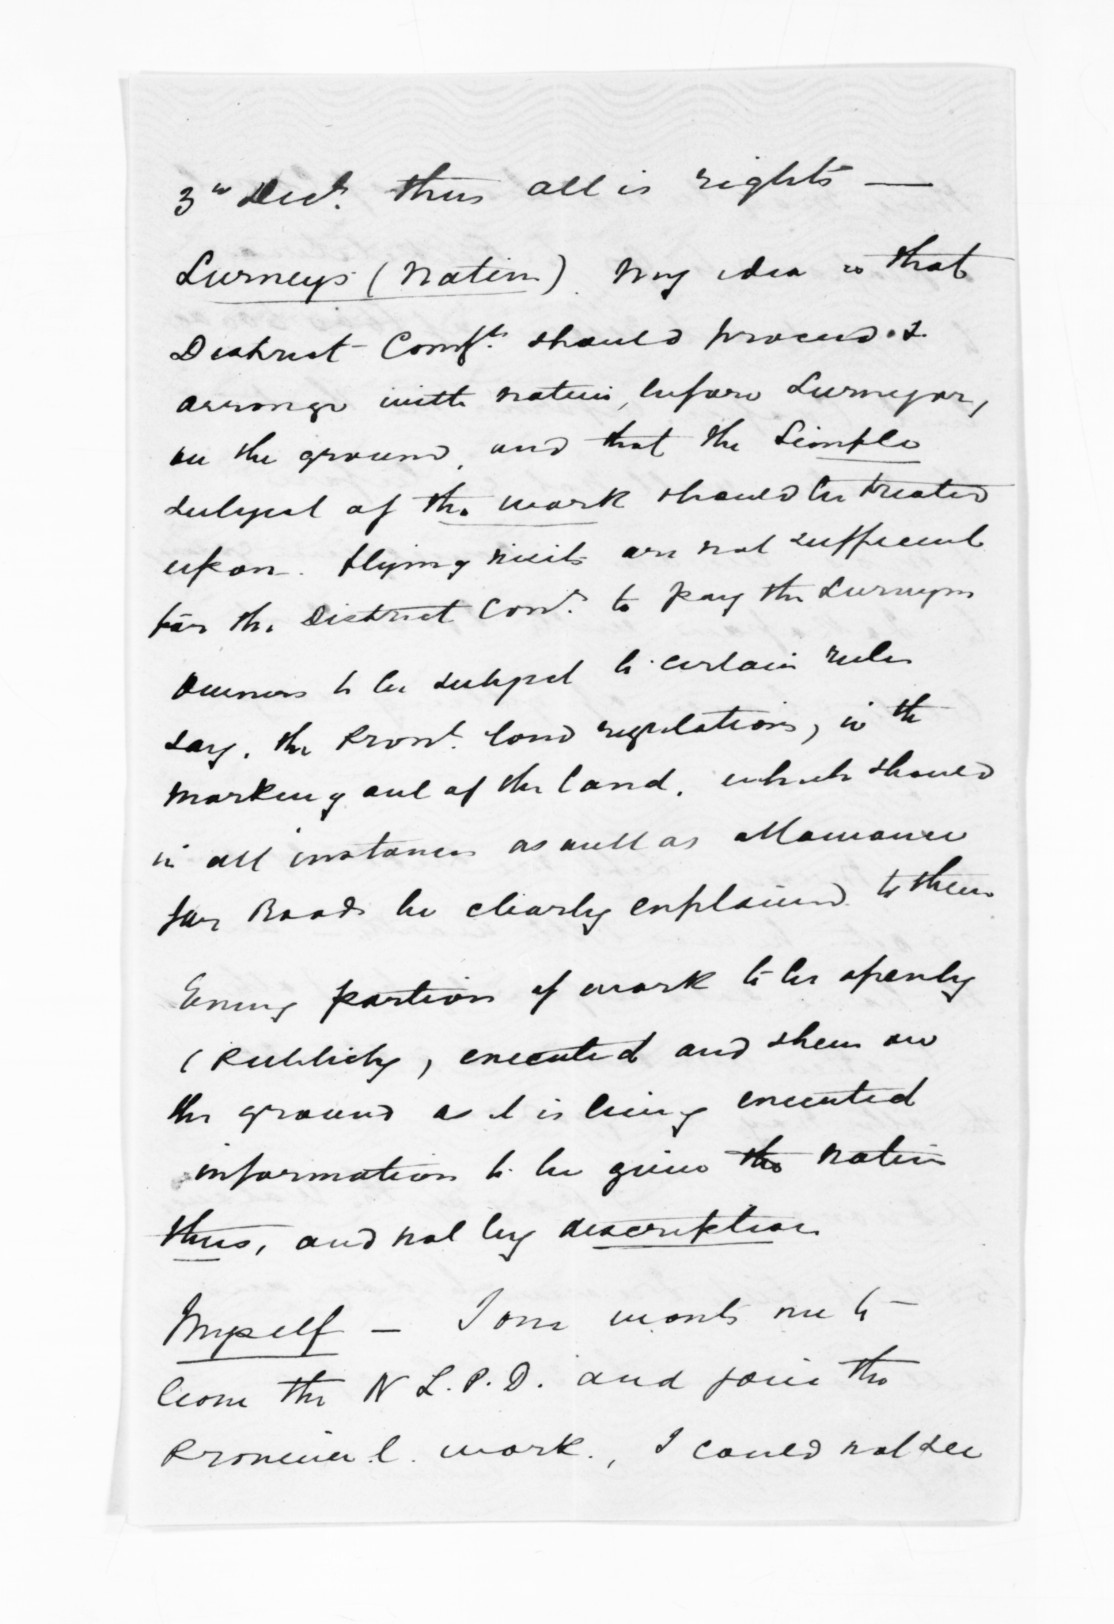 3rd Dist. thus all is right —
Surveys (Native). My idea is that
District Comr. should proceed &
arrange with natives, before Surveyor,
on the ground, and that the Simple
subject of the work should be treated
upon. Flying visits are not sufficient
for the District Comr. to pay the Surveyors
Owners to be subject to certain rules
say, the Provl. land regulations, in the
marking out of the land, which should
in all instances as well as allowance
for Roads be clearly explained to them
Every portion of work to be openly
(Publicly, executed and them on
the ground as it is being executed
information to be given the native
thus, and not by description
Myself — wants me to
leave the N L.P.D. and join the
Provincial. work., I could not see